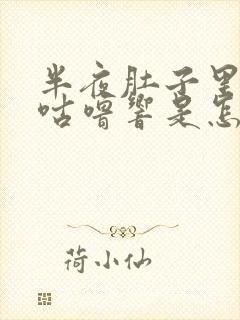 半夜肚子里
咕噜响是怎
荷小仙